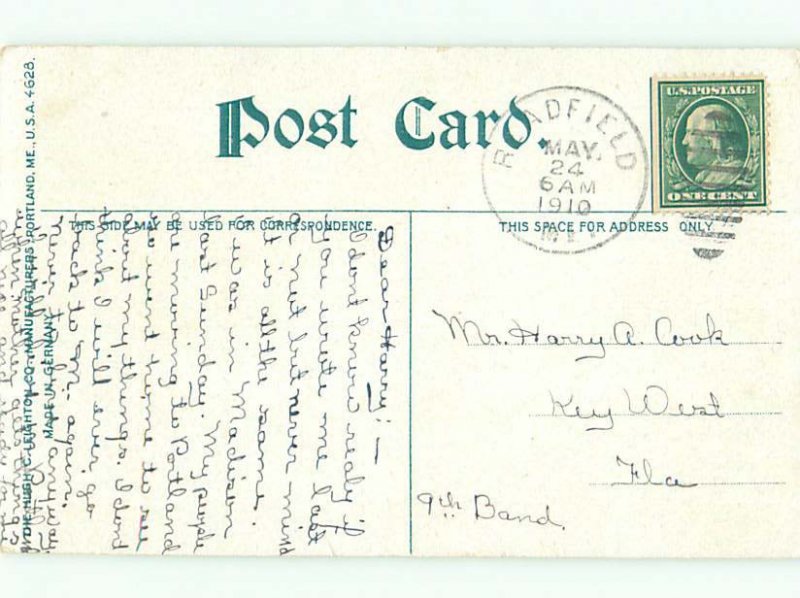 Post Card.
READFIELD
MAY.
24
6 AM
1910
ME
U.S. POSTAGE
ONE CENT
THE HUGH C. LEIGHTON CO., MANUFACTURERS, PORTLAND, ME., U.S.A. 4628.
MADE IN GERMANY
THIS SIDE MAY BE USED FOR CORRESPONDENCE.
THIS SPACE FOR ADDRESS ONLY
Dear Harry:—
I dont know realy if
you wrote me last
or not but never mind
it is all the same.
I was in Madison
last Sunday. My people
are moving to Portland
so went home to see
about my things. I dont
think I will ever go
back to again
Mr. Harry A. Cook
Key West
Fla
9th Band.